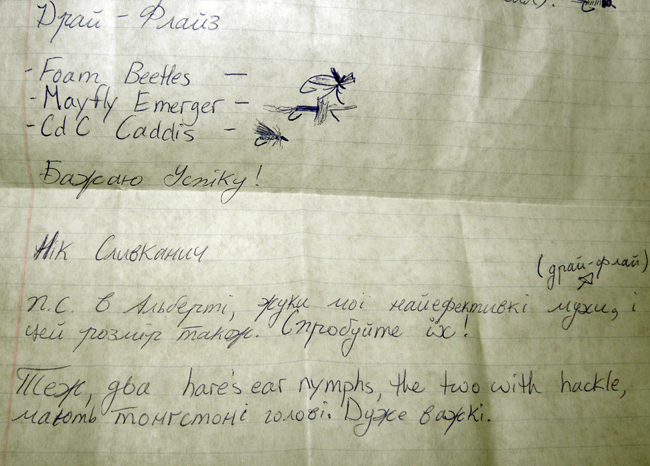 Драй-Флайз
- Foam Beetles -
- Mayfly Emerger -
- CdC Caddis -
Бажаю Успіку!
Нік Сливканич
(драй-флай)
П.С. в Альберті, жуки мої найефективкі мужи, і
цей розмір також. Спробуйте їх!
Теж, два hare's ear nymphs, the two with hackle,
мають тонгстоні голові. Дуже важкі.